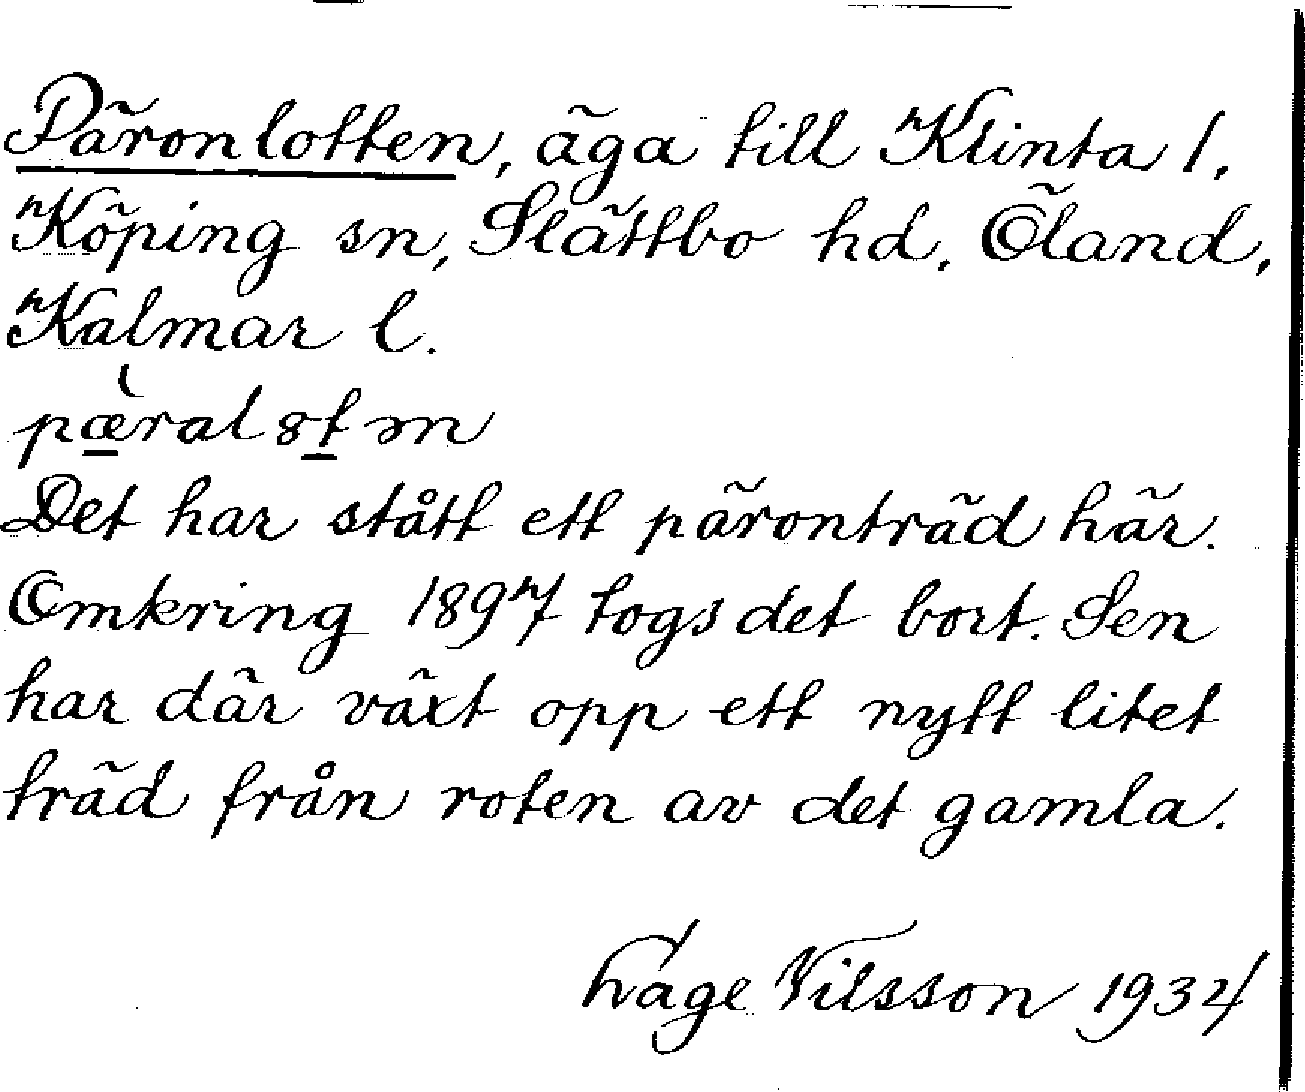 Päronlotten, äga till Klinta 1,
Köping sn, Slättbo hd. Öland,
Kalmar l.
pæ̀ralstm
Det har stått ett päronträd här.
Omkring 1897 togs det bort. Sen
har där växt opp ett nytt litet
träd från roten av det gamla.
Nilsson 1934